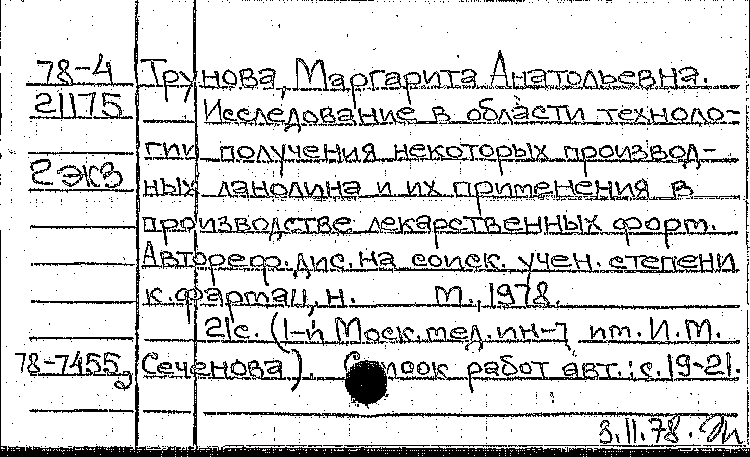 78-4 Трунова, Маргарита Анатольевна.
21175 Исследование в области техноло-
гии получения некоторых производ-
2 экз ных ланолина и их применения в
производстве лекарственных форм.
Автореф. дис. на соиск. учен. степени
к. фармац. н. М., 1978.
21 с. (1-й Моск. мед. ин-т им. И.М.
78-7455э Сеченова). Список работ авт.: с. 19-21.
3.11.78.